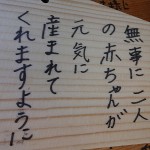 無事に二人
の赤ちゃんが
元気に
産まれて
くれますように